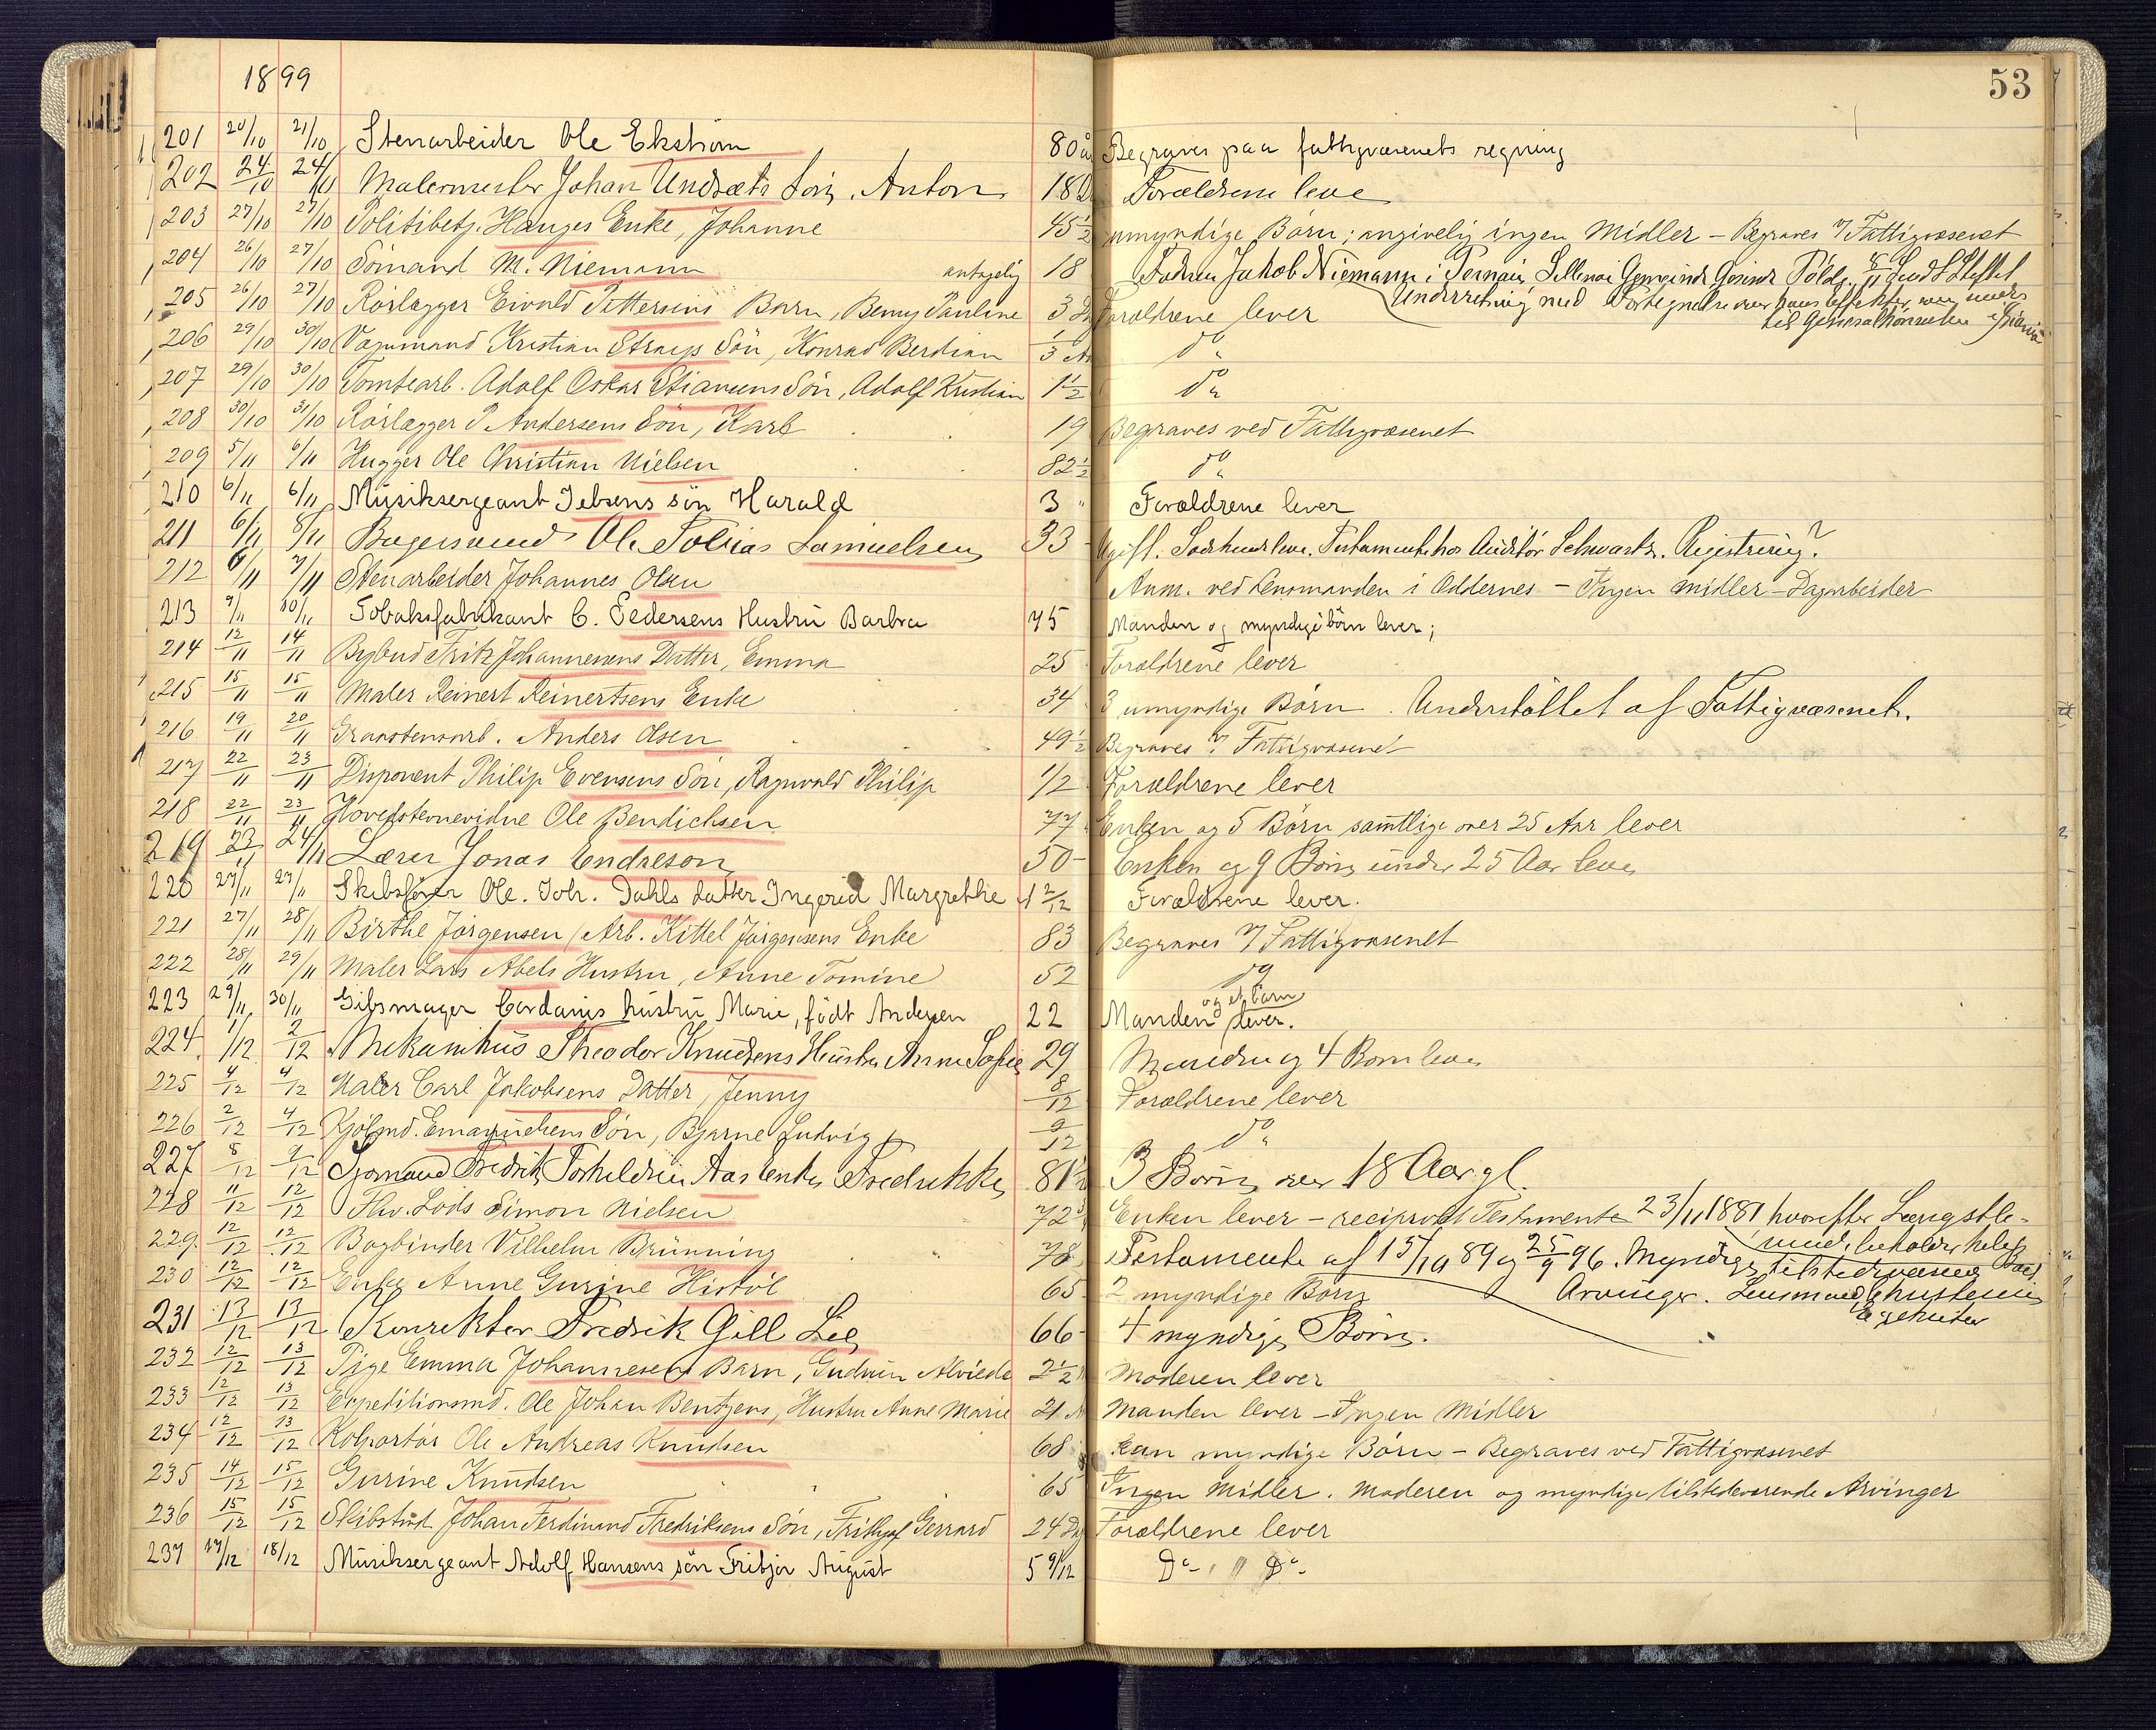 1899
53
201 20/10 21/10 Stenarbeider Ole Ekstrøm 80 år Begraves paa fattigvæsenets regning
202 24/10 24/10 Malermester Johan Undsets Søn, Anton 18 D Forældrene leve
203 27/10 27/10 Politibetj. Hauges Enke, Johanne 45 1/2 umyndige Børn; angivelig ingen Midler - Begraves v/ Fattigvæsenet
204 26/10 27/10 Sömand M. Niemann antagelig 18 Fadren Jakob Niemann i Pernau,
Underretning med Fortegnelse over hans Effekter
til Generalkonsulen
205 26/10 27/10 Rörlægger Eivald Pettersens Barn, Benny Pauline 3 Forældrene lever
206 29/10 30/10 Vognmand Kristian Strays Sön, Konrad Berdian 1/3 do
207 29/10 30/10 Tomtearb. Adolf Oskar Stiansens Sön, Adolf Kristian 1 1/2 do
208 30/10 31/10 Rörlægger P Andersens Sön, Karl 19 Begraves ved Fattigvæsenet
209 5/11 6/11 Hugger Ole Christian Nielsen 82 1/2 do
210 6/11 6/11 Musiksergeant Jebsens sön Harald 3 " Forældrene lever
211 6/11 8/11 Ole Tobias Samuelsen 33 Ugift. Testamente hos Auditør Schwartz. Registrering?
212 6/11 7/11 Stenarbeider Johannes Olsen Anm. ved Lensmanden i Oddernes - Ingen Midler - Dagarbeider
213 9/11 10/11 Tobaksfabrikant C. Pedersens Hustru Barbra 75 Manden og myndige börn lever;
214 12/11 14/11 Bybud Fritz Johannesens Datter, Emma 25 Forældrene lever
215 15/11 15/11 Maler Reinert Reinertsens Enke 34 3 umyndige Börn. Understöttet af Fattigvæsenet.
216 19/11 20/11 Graastensarb. Anders Olsen 49 1/2 Begraves v/ Fattigvæsenet
217 22/11 23/11 Disponent Philip Evensens Sön, Ragnvald Philip 1/2 Forældrene lever
218 22/11 23/11 Hovedstevnevidne Ole Bendichsen 77 Enken og 5 Börn samtlige over 25 Aar lever
219 23/11 24/11 Lærer Jonas Endreson 50 - Enken og 9 Börn under 25 Aar lever
220 27/11 27/11 Skibsförer Ole. Joh. Dahls datter Ingerid Margrethe 4 2/12 Forældrene lever.
221 27/11 28/11 Birthe Jörgensen / Arb. Kittel Jörgensens Enke 83 Begraves v/ Fattigvæsenet
222 28/11 29/11 Maler Lars Abels Hustru, Anne Tomine 52 do
223 29/11 30/11 Gibsmager Cardanis hustru Marie, födt Andersen 22 Manden og et barn lever.
224 1/12 2/12 Mekanikus Theodor Knudsens Hustru Anne Sofie 29 Manden og 4 Børn leve
225 4/12 4/12 Maler Carl Jakobsens Datter, Jenny 8/12 Forældrene lever
226 2/12 4/12 Kjöbmd. Emanuelsens Sön, Bjarne Ludvig 9/12 do
227 8/12 9/12 Sjømand Fredrik Torkildsen Aas Enke Fredrikke 81 1/2 3 Børn over 18 Aar gl.
228 11/12 12/12 Fhv. Lods Simon Nielsen 72 Enken lever - reciprokt Testamente 23/11 1881 hvorefter Længstle-
vende beholder hele Boet
229 12/12 12/12 Bogbinder Vilhelm Brünning 78 Testamente af 15/10 89 og 25/9 96. Myndige tilstedeværende
Arvinger. Lensmand Christensen
Executor
230 12/12 12/12 Enke Anne Gurine Histöl 65 2 myndige Børn
231 13/12 13/12 Konrektor Fredrik Gill Lie 66 - 4 myndige Børn.
232 12/12 13/12 Pige Emma Johannesens Barn, Gudrun Alvilde 2 1/2 Moderen lever
233 12/12 13/12 Expeditionsmd. Ole Johan Bentzens, Hustru Anne Marie 21 Manden lever - Ingen Midler
234 12/12 13/12 Kolportör Ole Andreas Knudsen 68 kun myndige Börn - Begraves ved Fattigvæsenet
235 14/12 15/12 Gurine Knudsen 65 Ingen Midler. Moderen og myndige tilstedeværende Arvinger
236 15/12 15/12 Skibstmd Johan Ferdinand Fredriksens Sön, Frithjof Gerrard 24 Dg Forældrene lever
237 17/12 18/12 Musiksergeant Adolf Hansens sön Fritjov August 5 9/12 Do - " Do -